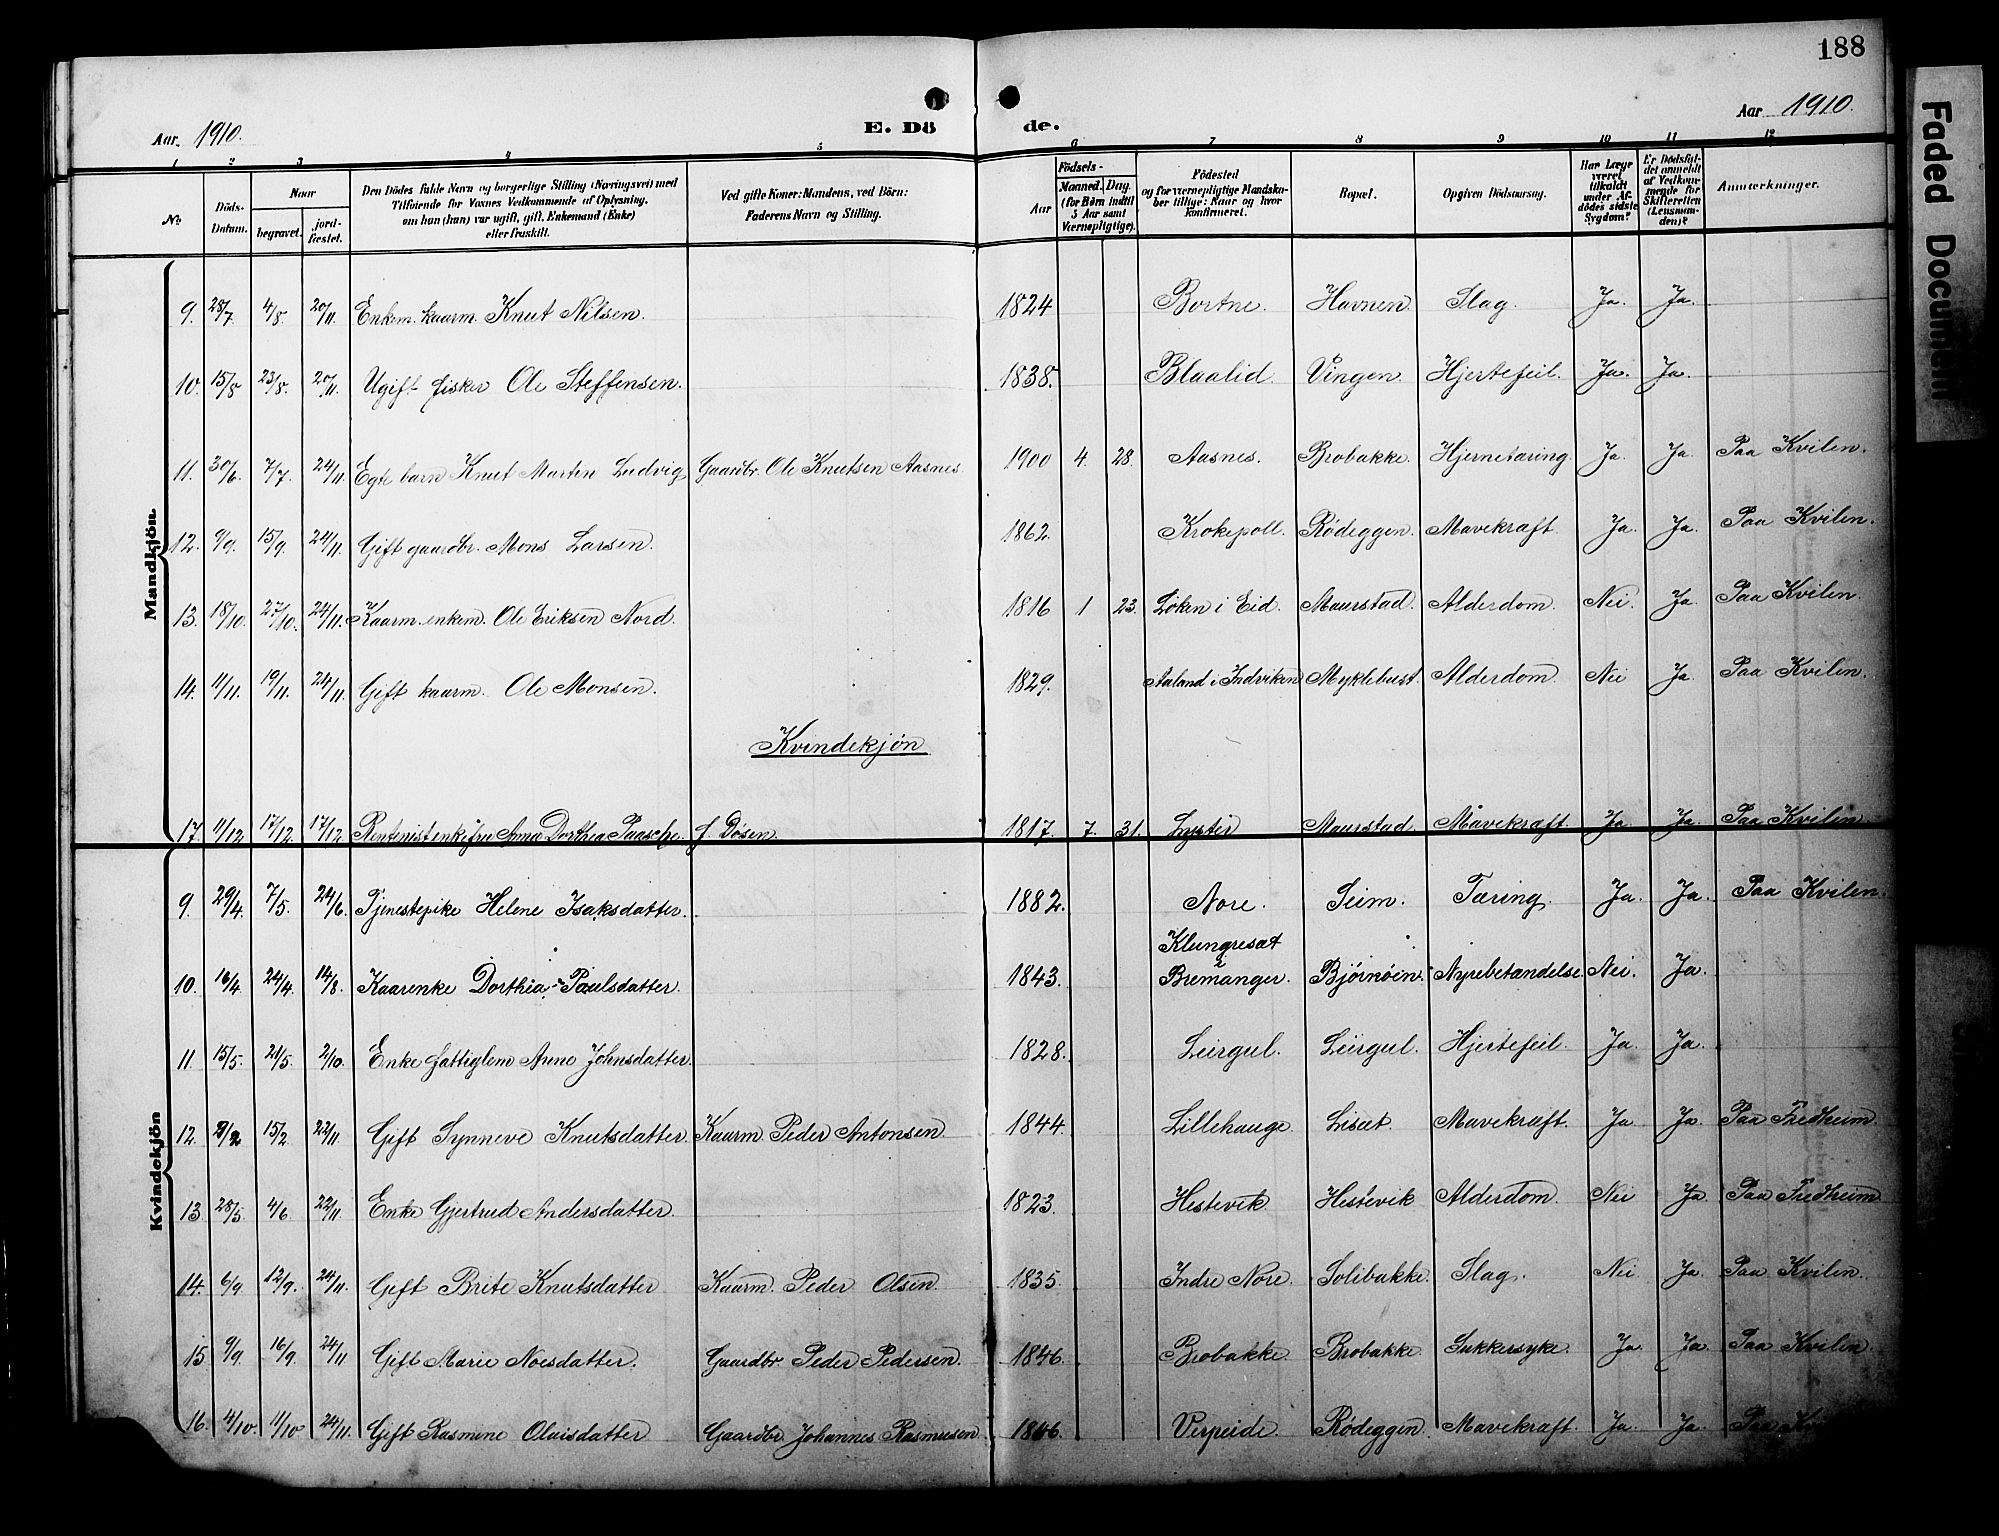 188
Faded Document
Aar 1910.
E. Dö de.
Aar 1910.
1 2 3 4 5 6 7 8 9 10 11 12
No
Döds-Datum.
Naar
begravet.
jord-fæstet.
Den Dödes fulde Navn og borgerlige Stilling (Næringsvei) med
Tilföiende for Voxnes Vedkommende af Oplysning,
om hun (han) var ugift, gift, Enkemand (Enke)
eller fraskilt.
Ved gifte Koner: Mandens, ved Börn:
Faderens Navn og Stilling.
Födsels-
Aar
Maaned. Dag.
(for Börn indtil
5 Aar samt
Værnepligtige).
Födested
og for værnepligtige Mandska-
ber tillige: Naar og hvor
konfirmeret.
Bopæl.
Opgiven Dödsaarsag.
Har Læge
været
tilkaldt
under Af-
dödes sidste
Sygdom?
Er Dödsfal-
det anmeldt
af Vedkom-
mende for
Skifteretten
(Lensman-
den)?
Anmærkninger.
Mandkjön.
9. 28/7. 4/8. 20/11. Enkem. kaarm. Knut Nilsen. 1824 Bortne. Havnen. Slag. Ja. Ja.
10. 15/8 23/8. 20/11. Ugift fisker Ole Steffensen. 1838. Blaalid Vingen. Hjertefeil. Ja. Ja.
11. 30/6. 7/7. 24/11. Egte barn Knut Martin Ludvig Gaardbr. Ole Knutsen Aasnes. 1900 4. 28. Aasnes. Brobakke. Hjernetæring. Ja. Ja. Paa Kvilen.
12. 9/9. 15/9. 24/11. Gift gaardbr. Mons Larsen. 1862. Krokepoll. Rödeggen. Mavekræft. Ja Ja. Paa Kvilen.
13. 18/10. 27/10. 24/11. Kaarm. enkem. Ole Eriksen Nord. 1816 1 23. Løken i Eid. Maurstad. Alderdom. Nei. Ja. Paa Kvilen.
14. 11/11. 19/11. 24/11. Gift kaarm. Ole Monsen. 1829. Aaland i Indviken Myklebust. Alderdom. Nei Ja. Paa Kvilen.
Kvindekjøn
17. 11/12 17/12. 17/12. Rentenist enkefru Anna Dorthea Paasche. f. Døsen. 1817. 7. 31. Lyster Maurstad Mavekræft. Ja. Ja. Paa Kvilen
Kvindekjön
9. 29/4. 7/5. 24/6. Tjenestepike Helene Isaksdatter. 1882. Nore. Seim. Tæring. Ja. Ja. Paa Kvilen.
10. 16/4. 24/4. 14/8. Kaarenke Dorthea Paulsdatter. 1843. Klungresæt i Bremanger. Bjørnøen. Nyrebetændelse Nei. Ja.
11. 15/5. 21/5. 2/10. Enke fattiglem Anne Johnsdatter. 1828. Leirgul. Leirgul. Hjertefeil. Ja. Ja.
12. 8/2 15/2. 22/11. Gift Synneve Knutsdatter. Kaarm. Peder Antonsen. 1844. Lillehauge Lisæt. Mavekræft. Ja Ja. Paa Fredheim.
13. 28/5. 4/6 22/11 Enke Gjertrud Andersdatter. 1823. Hestevik Hestevik Alderdom. Nei Ja. Paa Fredheim
14. 6/9 12/9. 24/11. Gift Brite Knutsdatter Kaarm. Peder Olsen. 1835. Indre Nore. Solibakke. Slag. Nei Ja. Paa Kvilen.
15 9/9. 16/9. 24/11 Gift Marie Noesdatter. Gaardbr. Peder Pedersen. 1846. Brobakke. Brobakke Sukkersyke. Ja Ja Paa Kvilen
16. 4/10. 11/10 24/11. Gift Rasmine Olaisdatter Gaardbr. Johannes Rasmusen 1846. Verpeide. Rödeggen. Mavekræft. Ja. Ja. Paa